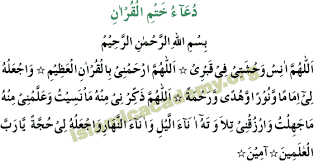 دُعَاءُ خَتْمِ الْقُرْاٰنِ
بِسْمِ اللهِ الرَّحْمٰنِ الرَّحِيْمُ
اَللّٰهُمَّ اٰنِسْ وَحْشَتِيْ فِيْ قَبْرِيْ ☆ اَللّٰهُمَّ ارْحَمْنِيْ بِالْقُرْاٰنِ الْعَظِيْمِ ☆ وَاجْعَلْهُ
لِيْ اِمَامًا وَّنُوْرًا وَّهُدًى وَّرَحْمَةً ☆ اَللّٰهُمَّ ذَكِّرْنِيْ مِنْهُ مَا نَسِيْتُ وَعَلِّمْنِيْ مِنْهُ
مَا جَهِلْتُ وَارْزُقْنِيْ تِلَاوَتَهٗ اٰنَآءَ الَّيْلِ وَ اٰنَآءَ النَّهَارِ وَاجْعَلْهُ لِيْ حُجَّةً يَّا رَبَّ
الْعٰلَمِيْنَ ☆ اٰمِيْنَ ☆